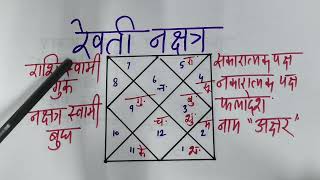 रेवती नक्षत्र
राशि स्वामी
गुरु
नक्षत्र स्वामी
बुध
7
5
8
4
9
3
10
12
2
11 के
1
सकारात्मक पक्ष
नकारात्मक पक्ष
फलादेश
नाम "अक्षर"